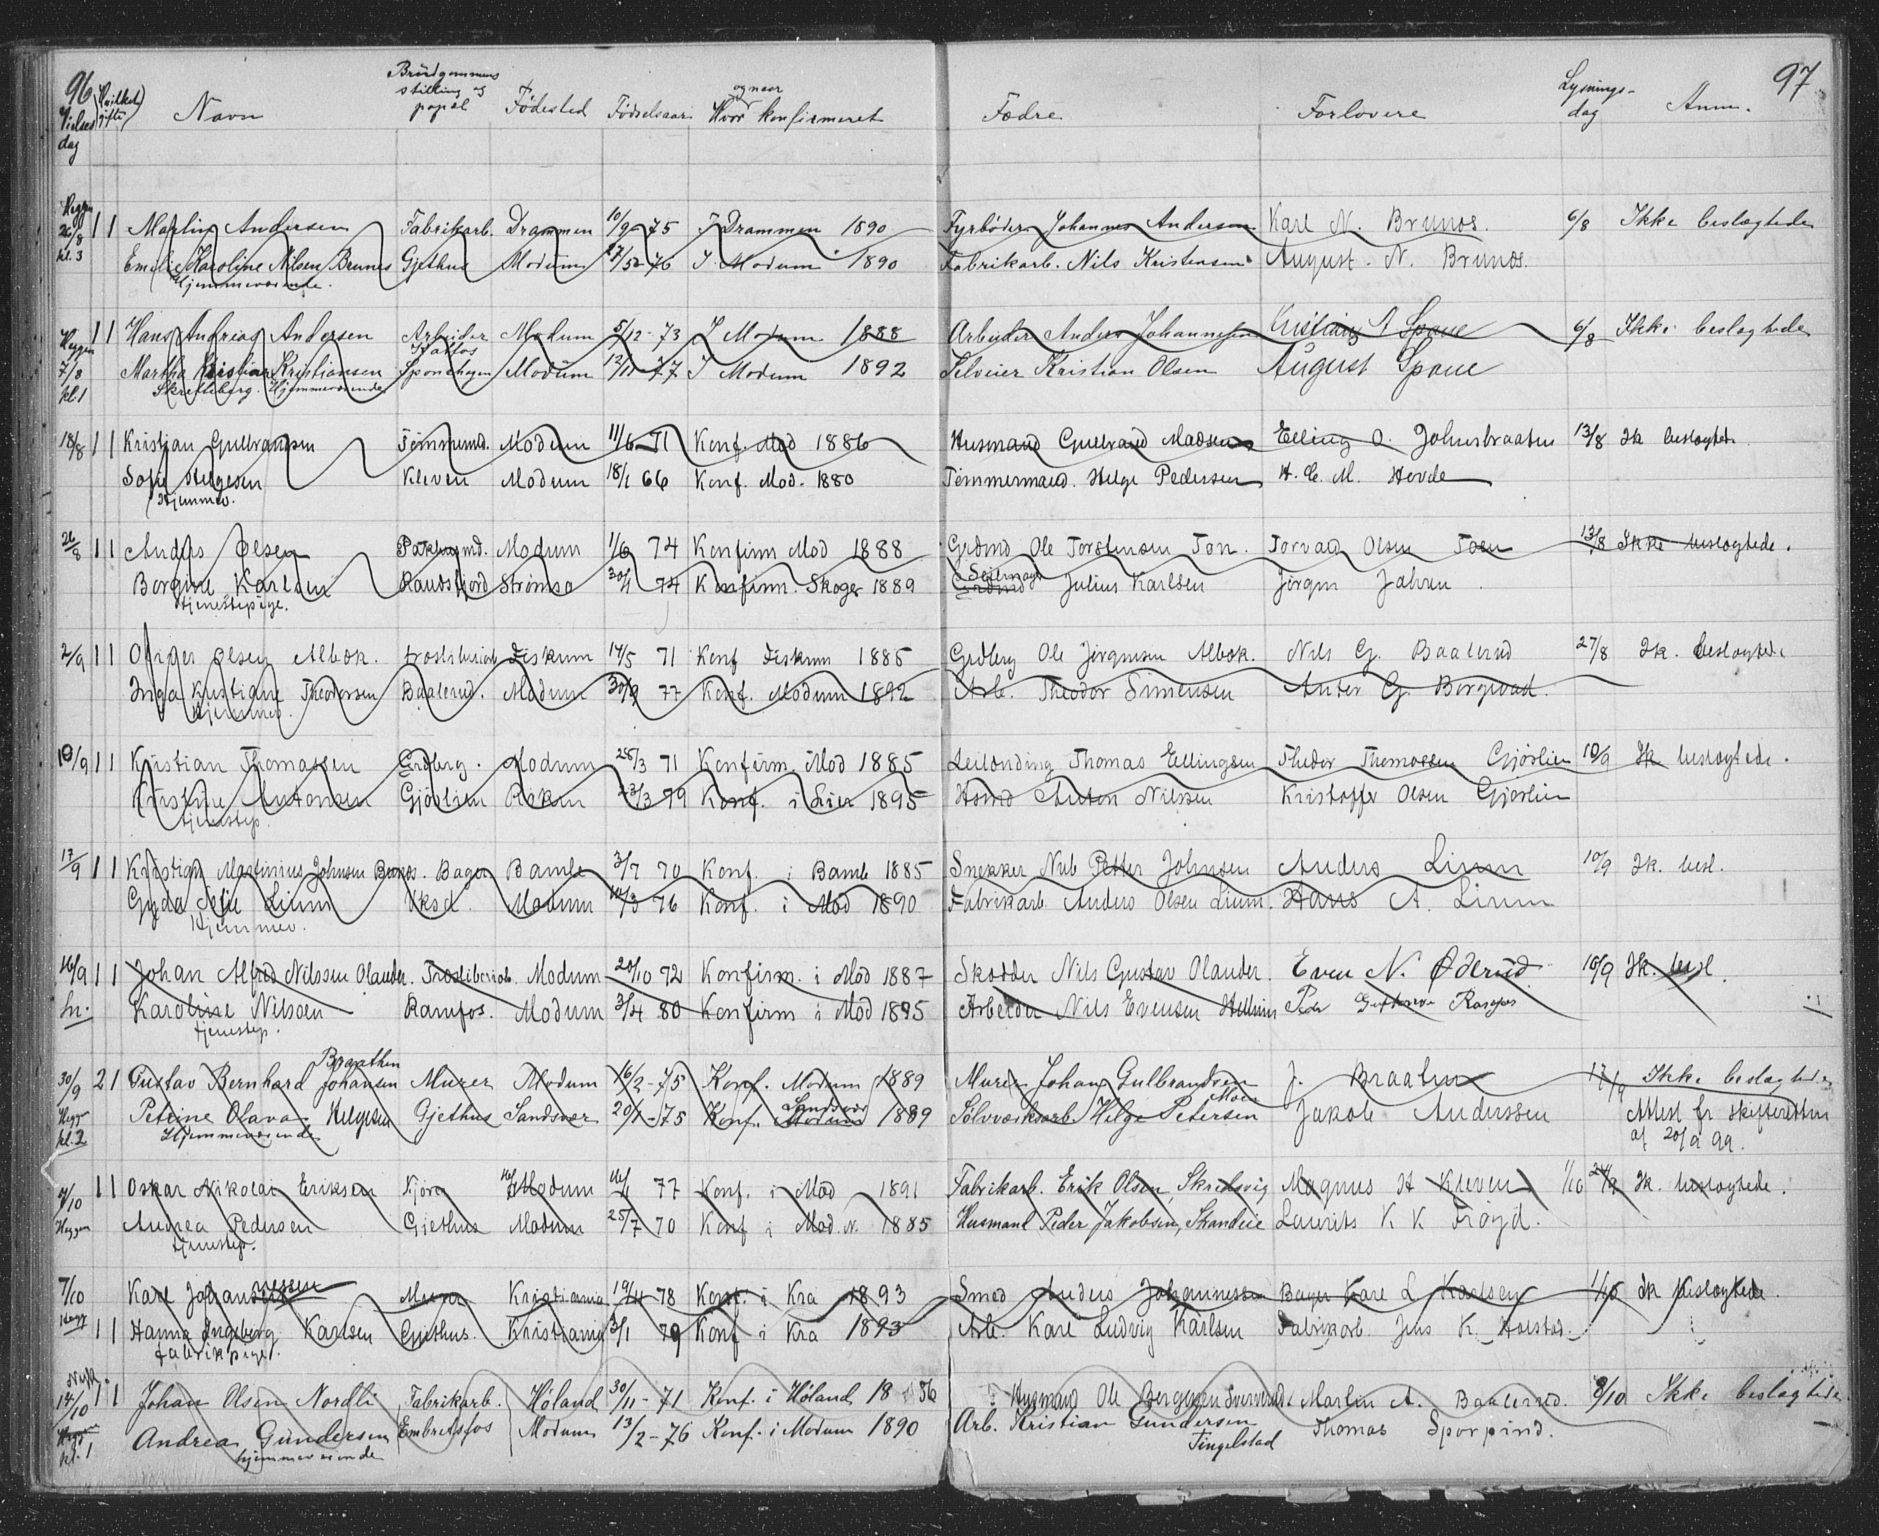 96
97
Vielses dag | Hvilket gifte | Navn | Brudgommens stilling og | Fødested | Fødselsaar | Hvor og naar konfirmeret | Fædre | Forlovere | Lysnings-dag | Anm.
Heggen 26/8 kl. 3 | 1 1 | Martin Andersen | Fabrikarb. | Drammen | 10/9 75 | I Drammen 1890 | Fyrbøder Johannes Andersen | Karl N. Brunes. | 6/8 | Ikke beslægtede
Emelie Karoline Nilsen Brunes | Gjethus | Modum | 76 | I Modum 1890 | Fabrikarb. Nils Kristensen | August. N. Brunes.
Hjemmeværende.
Heggen 7/8 kl. 1 | 1 1 | Hans Andreas Andersen | Arbeider | Modum | 5/12 - 73 | I Modum 1888 | Arbeider Anders Johannesen | Kristian A Spone | 6/8 | Ikke beslægtede
Martha Kristiansen | Sponehugen | Modum | 12/11 77 | I Modum 1892 | Selveier Kristian Olsen | August Spone
Skretteberg. Hjemmeværende
18/8 | 1 1 | Kristian Gulbrandsen | Tømmermd. | Modum | 11/6 71 | Konf. Mod 1886 | Husmand Gulbrand Madsen | Elling O. Johnsbraaten | 13/8 | Ik beslægtede.
Sofie Helgesen | Kleven | Modum | 18/1 66 | Konf. Mod. 1880 | Tømmermand. Helge Pedersen | H. C. M. Hovde
Hjemmev.
26/8 | 1 1 | Anders Olsen | Pakhusmd. | Modum | 1/6 74 | Konfirm Mod 1888 | Grdmd Ole Torstensen Ton. | Torvald Olsen | 13/8 | Ikke beslægtede.
Borgine Karlsen | Randsfjord | Strømsø | 30/1 74 | Konfirm. Skoger 1889 | Seilmager Julius Karlsen | Jørgen Jahren
tjenestepige.
2/9 | 1 1 | Olsen Albæk. | træsliberiarb | Fiskum | 14/5 71 | Konf Fiskum 1885 | Grdbrg Ole Jørgensen Albæk. | Nils G. Baalerud | 27/8 | Ik. beslægtede
Inga Kristiane Theodorsen | Baalerud. | Modum | 30/9 77 | Konf. Modum 1892 | Arb. Theodor Simensen | Anter G. Borgevad.
Hjemmev.
10/9 | 1 1 | Kristian Thomassen | Grdbrg. | Modum | 25/3 71 | Konfirm. Mod 1885 | Leilænding Thomas Ellingsen | Thedor Thomassen Gjørlien | 10/9 | Ik beslægtede.
Kristine Antonsen | Gjørlien | 23/3 79 | Konf. i Lier 1895 | Hsmd Anton Nilssen | Kristoffer Olsen Gjørlien
tjenestep.
17/9 | 1 1 | Kristian Martinius Johnsen | Bager | Bamle | 3/7 70 | Konf. i Bamle 1885 | Snekker Nils Petter Johnsen | Anders Lium | 10/9 | Ik. besl.
Gyda Sofie Lium | Modum | 14/3 76 | Konf. i Mod 1890 | Fabrikarb Anders Olsen Lium. | Hans A. Lium
Hjemmev.
16/9 | 1 1 | Johan Alfred Nilssen Olander. | Træsliberiarb. | Modum | 20/10 72 | Konfirm. i Mod 1887 | Skodder Nils Gustav Olander. | Even N. Øderud | 10/9 | Ik. besl.
Karoline Nilssen | Ramfos. | Modum | 3/4 80 | Konfirm i Mod 1895 | Arbeider Nils Evensen | Peder
tjenestep.
30/9 Hegg. kl. 2 | 2 1 | Gustav Bernhard Johansen Braathen | Murer | Modum | 16/2 - 75 | Konf. Modum 1889 | Murer Johan Gulbrandsen | J. Braaten | 17/9 | Ikke beslægtede
Petrine Olava Helgesen | Gjethus | Sandsvær | 20/1 - 75 | Konf. Sandsvær 1889 | Sølvværksarb Helge Petersen Moen | Jakob Anderssen | Attest fr skifteretten af 20/9 99.
Hjemmeværende
4/10 Heggen | 1 1 | Oskar Nikolai Eriksen | Modum | 77 | Konf. i Mod 1891 | Fabrikarb. Erik Olsen, Skredsvig | Magnus H Kleven | 1/10 | Ik. beslægtede.
Andrea Pedersen | Gjethus | Modum | 25/7 70 | Konf i Mod. N. 1885 | Husmand Peder Jakobsen, | Laurits K K Frøyd.
tjenestep.
7/10 Hegg | 1 1 | Karl Johannessen | Murer | Kristiania | 19/4 78 | Konf. i Kra 1893 | Smed Anders Johannessen | Bager Karl L Karlsen | 1/10 | Ik beslægtede.
Hanna Ingeborg Karlsen | Gjethus. | Kristiania | 3/1 79 | Konf i Kra 1893 | Arb. Karl Ludvig Karlsen | Fabrikarb. Jens K. Holstad.
fabrikpige.
14/10 kl. 1 | 1 1 | Johan Olsen Nordli | Fabrikarb. | Høland | 30/11 - 71 | Konf. i Høland 1886 | Husmand Ole | Martin A. Baalerud. | 8/10 | Ikke beslægtede
Andrea Gundersen | Embretsfos | Modum | 13/2 - 76 | Konf. i Modum 1890 | Arb. Kristian Gundersen Tingelstad | Thomas Sporpind.
hjemmeværende